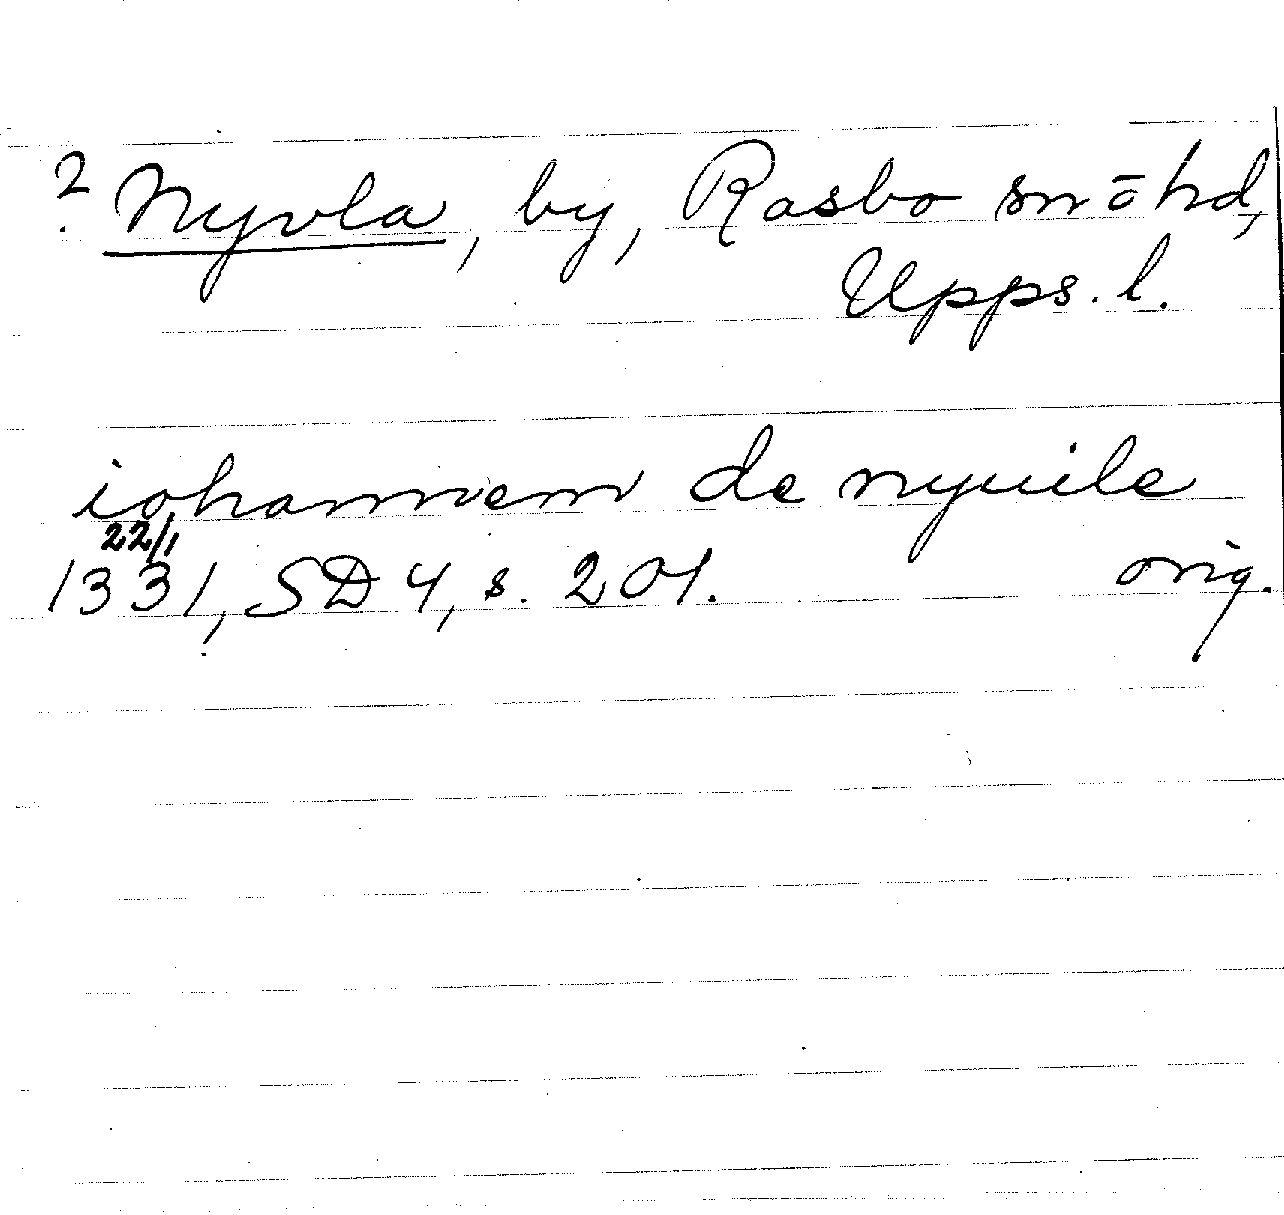 ? Nyvla, by, Rasbo sn o hd,
Upps. l.
iohannem de nyuile
22/1
1331, SD 4, s. 201. orig.